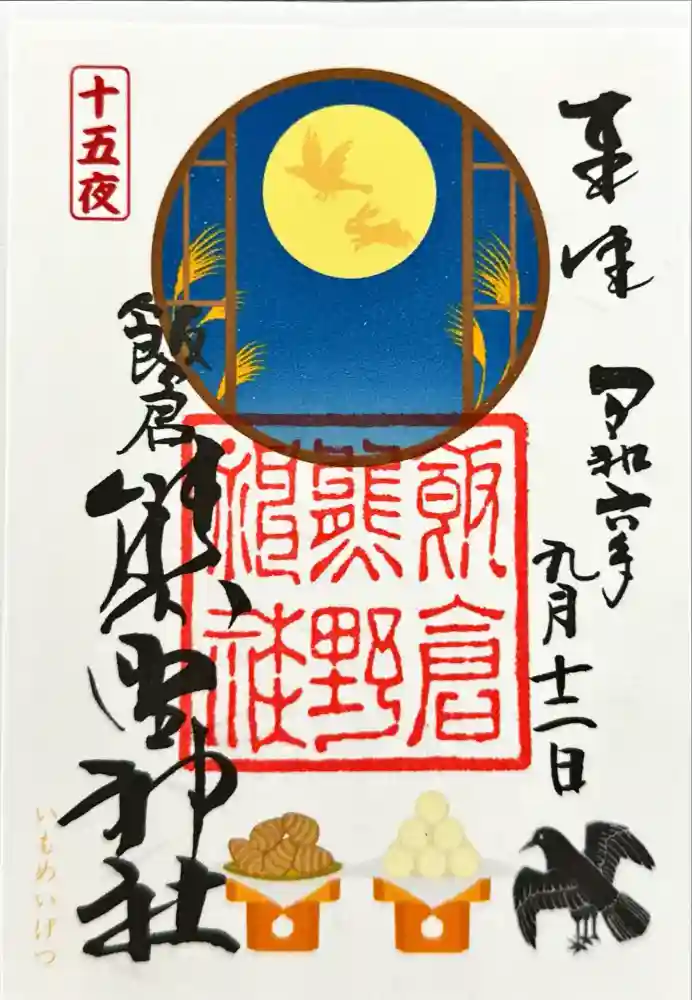 奉拝
令和六年
九月十二日
飯倉
熊野
神社
飯倉
熊野神社
十五夜
いもめいげつ